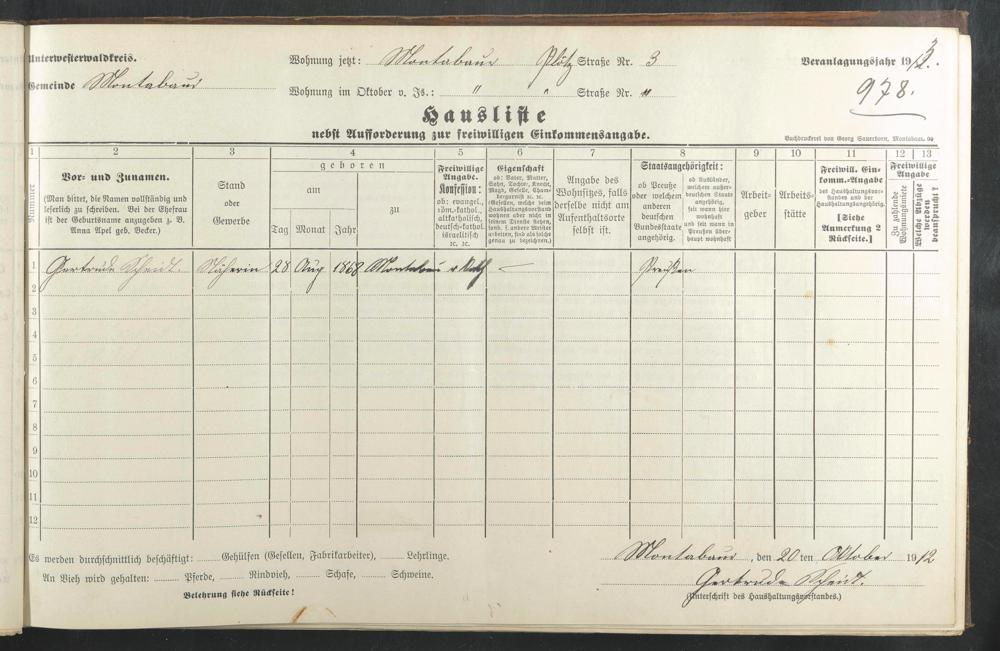 Unterwesterwaldkreis.
Wohnung jetzt: Montabaur Plötz Straße Nr. 3
Veranlagungsjahr 1913.
Gemeinde Montabaur
Wohnung im Oktober v. Js.: " " Straße Nr. "
978.
Hausliste
nebst Aufforderung zur freiwilligen Einkommensangabe.
Buchdruckerei von Georg Sauerborn, Montabaur.
1 2 3 4 5 6 7 8 9 10 11 12 13
Nummer
Vor- und Zunamen.
(Man bittet, die Namen vollständig und
leserlich zu schreiben. Bei der Ehefrau
ist der Geburtsname anzugeben z. B.
Anna Apel geb. Becker.)
Stand
oder
Gewerbe
geboren
am
zu
Tag Monat Jahr
Freiwillige
Angabe.
Konfession:
ob: evangel.,
röm.-kathol.,
altkatholisch,
deutsch-kathol.
israelitisch
ꝛc. ꝛc.
Eigenschaft
ob: Vater, Mutter,
Sohn, Tochter, Knecht,
Magd, Geselle, Cham-
bergarnist ꝛc. ꝛc.
(Gesellen, welche beim
Haushaltungsvorstand
wohnen aber nicht in
seinem Dienste stehen,
sond. f. andere Meister
arbeiten, sind als solche
genau zu bezeichnen.)
Angabe des
Wohnsitzes, falls
derselbe nicht am
Aufenthaltsorte
selbst ist.
Staatsangehörigkeit:
ob Preuße
oder welchem
anderen
deutschen
Bundesstaate
angehörig.
ob Ausländer,
welchem außer-
deutschen Staate
angehörig,
seit wann hier
wohnhaft
und seit wann in
Preußen über-
haupt wohnhaft
Arbeit-
geber
Arbeits-
stätte
Freiwill. Ein-
komm.-Angabe
des Haushaltungsvor-
standes und der
Haushaltungsangehörig.
[Siehe
Anmerkung 2
Rückseite.]
Freiwillige
Angabe
Zu zahlende
Wohnungsmiete
Welche Abzüge
werden
beansprucht?
1 Gertrude Scheidt. Näherin 28 Aug 1868 Montabaur r. kath — Preußen
2
3
4
5
6
7
8
9
10
11
12
Es werden durchschnittlich beschäftigt: Gehülfen (Gesellen, Fabrikarbeiter), Lehrlinge.
Montabaur, den 20 ten Oktober 1912
An Vieh wird gehalten: Pferde, Rindvieh, Schafe, Schweine.
Gertrude Scheidt.
Belehrung siehe Rückseite!
(Unterschrift des Haushaltungsvorstandes.)